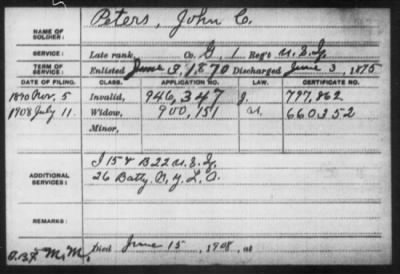 Peters, John C.
NAME OF SOLDIER:
SERVICE: Late rank, Co. G, 1 Reg't U.S.I.
TERM OF SERVICE: Enlisted June 8, 1870 Discharged June 3, 1875
DATE OF FILING. CLASS. APPLICATION NO. LAW. CERTIFICATE NO.
1890 Nov. 5 Invalid, 946,347 J. 797,862
1908 July 11 Widow, 900,151 660352
Minor,
ADDITIONAL SERVICES: I 15 & B 22 U.S.I.
26 Batty. N.Y. L.A.
REMARKS:
M.M. Died June 15, 1908, at